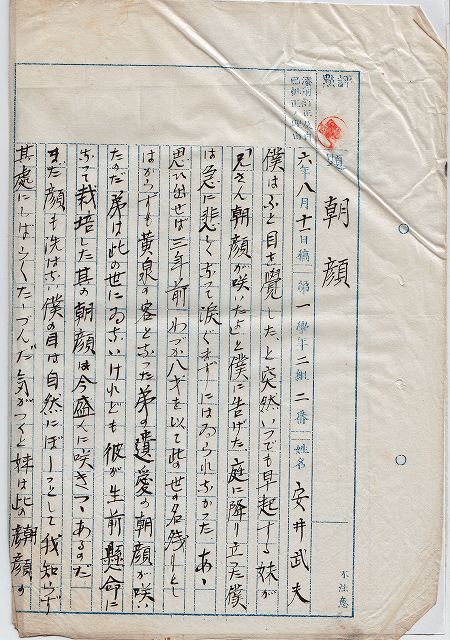 評點
題
朝顔
六年八月十一日稿 第一學年二組二番 姓名 安井武夫
不注意
僕はふと目を覺した、と突然いつでも早起する妹が
「兄さん朝顔が咲いたよ」と僕に告げた。庭に降り立つた僕
は急に悲しくなつて涙ぐまずにはゐられなかつた。あゝ
思ひ出せば三年前わづか八才を以て此の世の名残りとし
はからずも黄泉の客となつた弟の遺愛の朝顔が咲い
たのだ 弟は此の世にゐないけれども彼が生前懸命に
なつて栽培した其の朝顔は今盛んに咲きつゝあるのだ
まだ顔も洗はない僕の目は自然にぼーつとして我知らず
其處にしばらくたゝづんだ 気がつくと妹は此の朝顔の